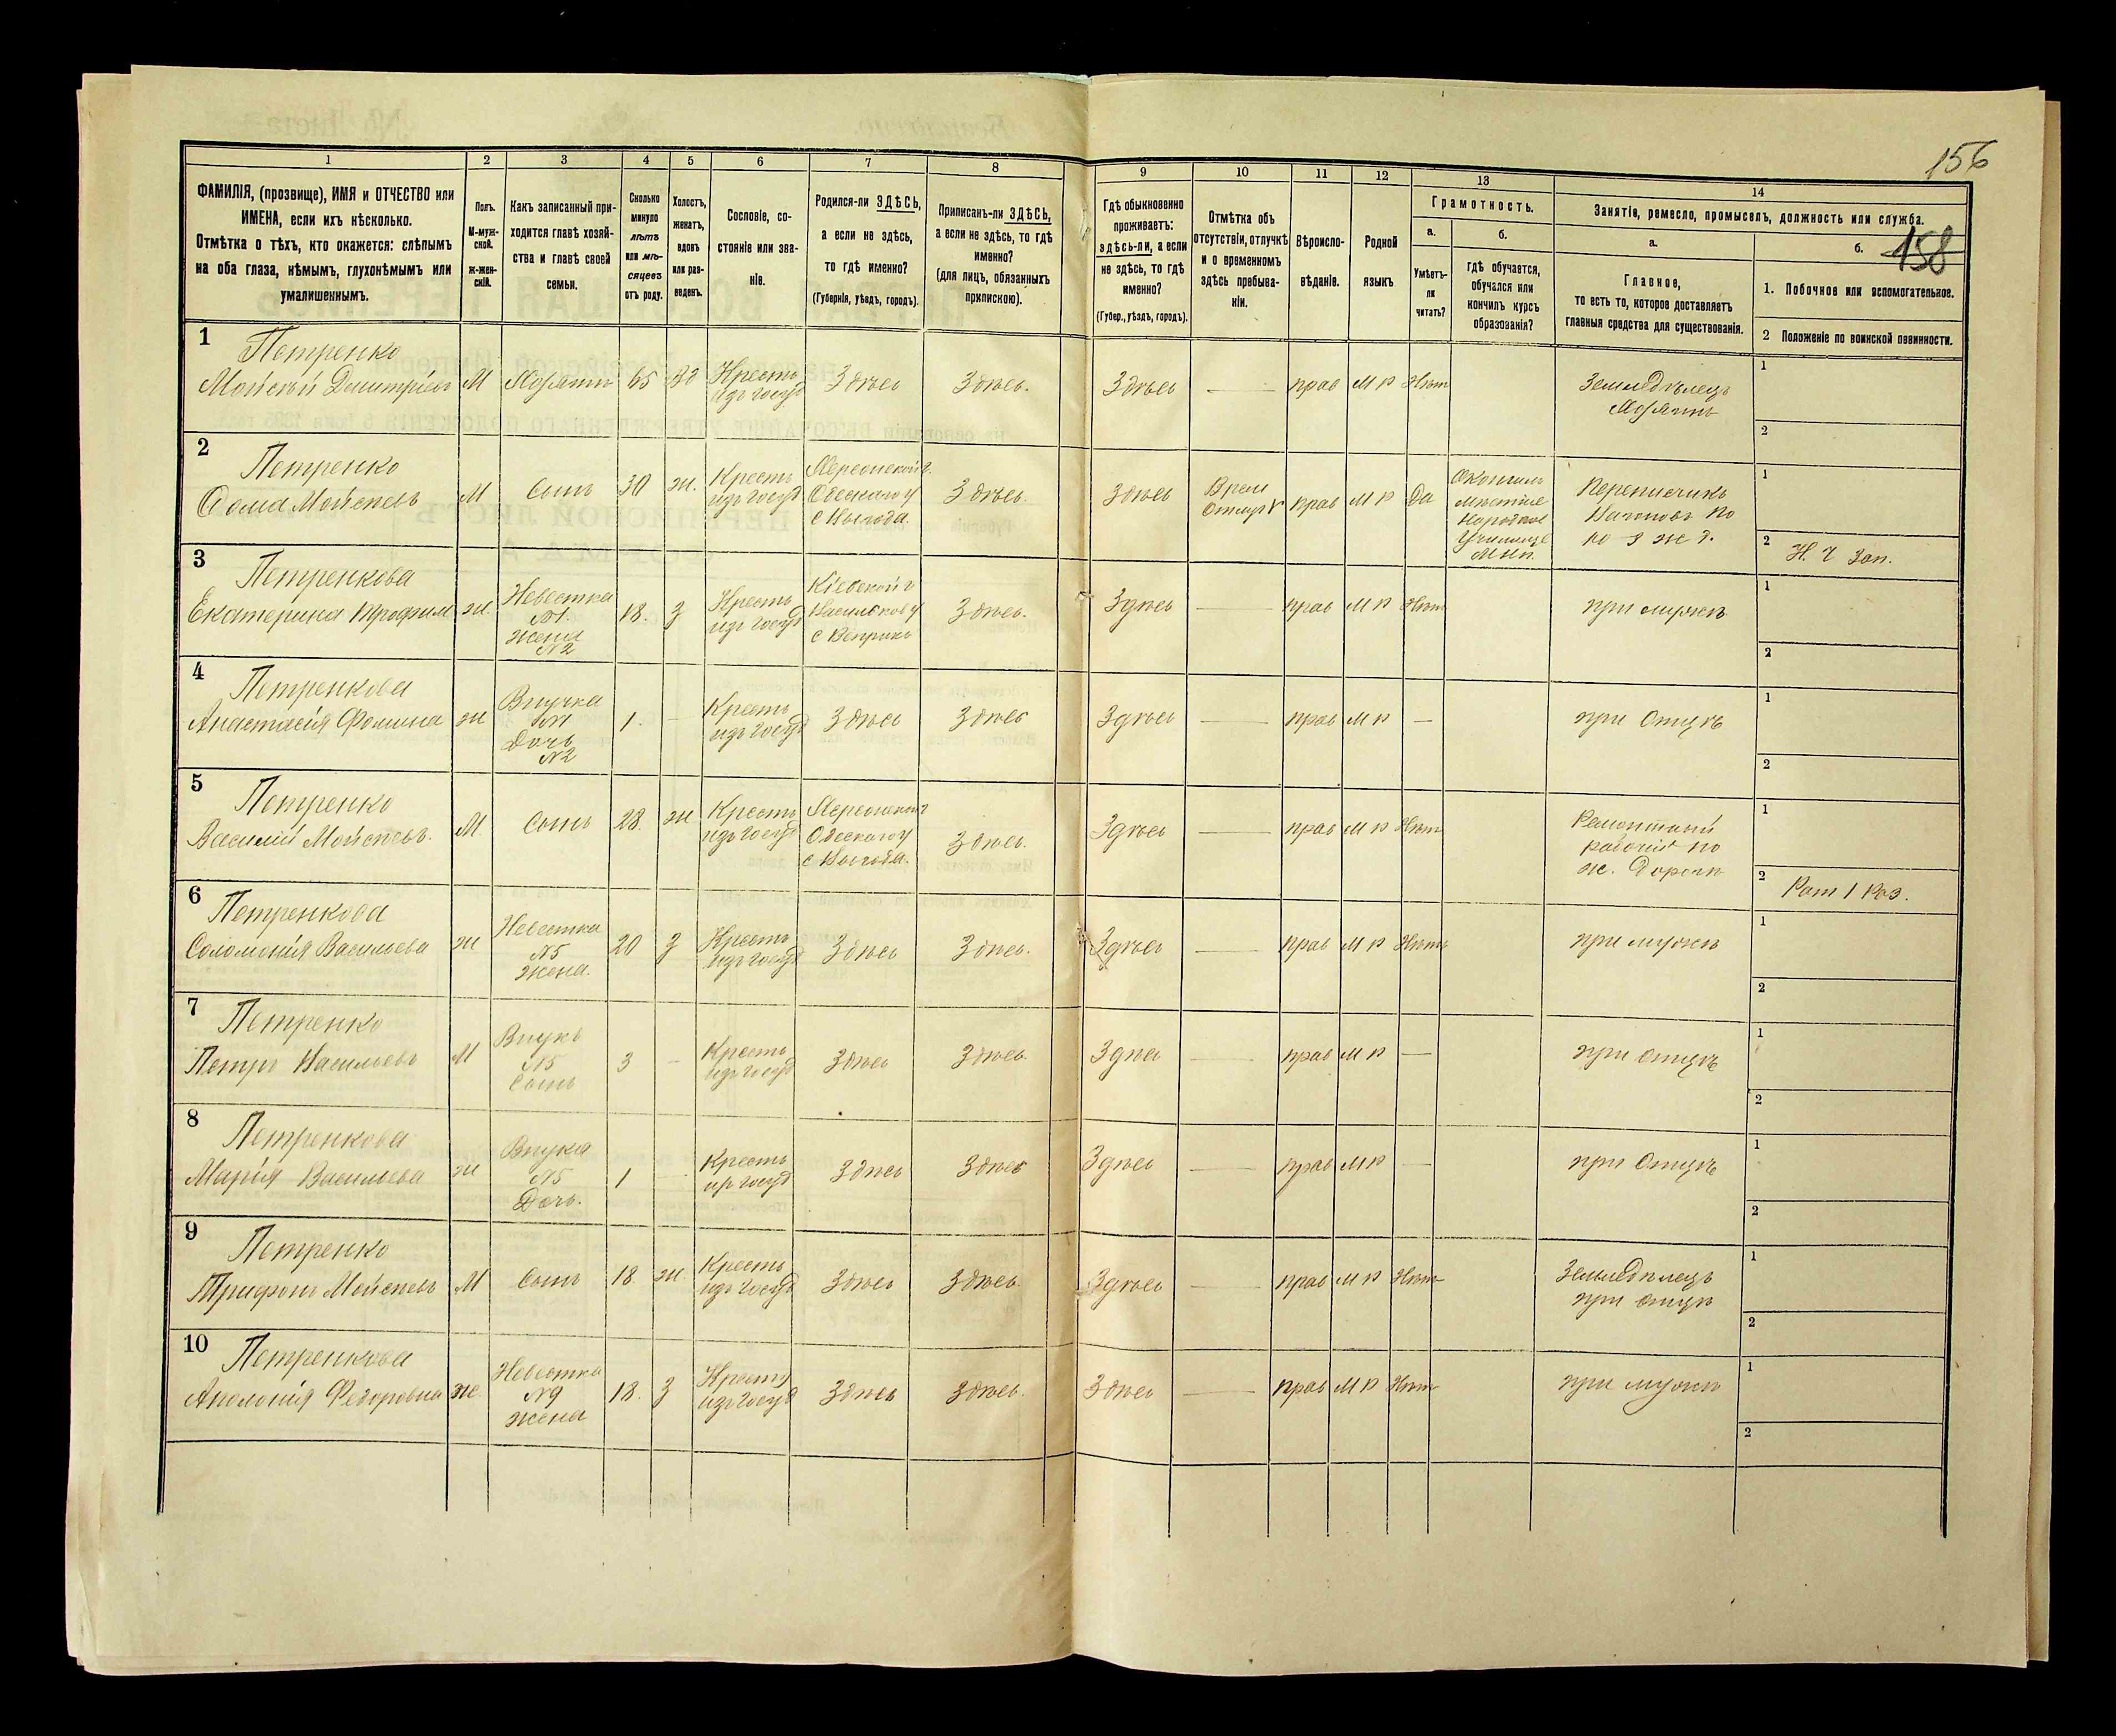 156
158
1
2
3
4
5
6
7
8
9
10
11
12
13
14
ФАМИЛІЯ, (прозвище), ИМЯ и ОТЧЕСТВО или
ИМЕНА, если ихъ нѣсколько.
Отмѣтка о тѣхъ, кто окажется: слѣпымъ
на оба глаза, нѣмымъ, глухонѣмымъ или
умалишеннымъ.
Полъ.
М-муж-
ской.
ж-жен-
скій.
Какъ записанный при-
ходится главѣ хозяй-
ства и главѣ своей
семьи.
Сколько
минуло
лѣтъ
или мѣ-
сяцевъ
отъ роду.
Холостъ,
женатъ,
вдовъ
или раз-
веденъ.
Сословіе, со-
стояніе или зва-
ніе.
Родился-ли ЗДѢСЬ,
а если не здѣсь,
то гдѣ именно?
(Губернія, уѣздъ, городъ).
Приписанъ-ли ЗДѢСЬ,
а если не здѣсь, то гдѣ
именно?
(для лицъ, обязанныхъ
припискою).
Гдѣ обыкновенно
проживаетъ:
здѣсь-ли, а если
не здѣсь, то гдѣ
именно?
(Губер., уѣздъ, городъ).
Отмѣтка объ
отсутствіи, отлучкѣ
и о временномъ
здѣсь пребыва-
ніи.
Вѣроиспо-
вѣданіе.
Родной
языкъ.
Грамотность.
а.
Умѣетъ-
ли
читать?
б.
гдѣ обучается,
обучался или
кончилъ курсъ
образованія?
Занятіе, ремесло, промыселъ, должность или служба.
а.
Главное,
то есть то, которое доставляетъ
главныя средства для существованія.
б.
1. Побочное или вспомогательное.
2 Положеніе по воинской повинности.
1
Петренко
Мойсѣй Дмитріевъ
М
Хозяинъ
65
Вд
Кресть
изъ госуд
Здѣсь
Здѣсь.
Здѣсь
—
прав
М р
Нѣт
Земледѣлецъ
Хозяинъ
1
2
2
Петренко
Фома Мойсѣевъ
М
Сынъ
30
ж.
Кресть
изъ госуд
Херсонской г.
Одескаго у
с Выгода.
Здѣсь.
Здѣсь
Врем
Отлуч
прав
М р
Да
Окончилъ
мѣстное
Народное
Училище
Переписчикъ
Вагоновъ по
ю з ж д.
1
2
Н. Ч Зап.
3
Петренкова
Екатерина Трофим
ж.
Невестка
№1.
жена
№2
18.
З
Кресть
изъ госуд
Кіевской г
Васильков у
с Веприкъ
Здѣсь.
Здѣсь
—
прав
М р
Нѣт
при мужѣ
1
2
4
Петренкова
Анастасія Фомина
ж
Внучка
№1
Дочь
№2
1.
-
Кресть
изъ госуд
Здѣсь
Здѣсь
Здѣсь
—
прав
М р
—
при Отцѣ
1
2
5
Петренко
Василій Мойсѣевъ.
М.
Сынъ
28.
ж
Кресть
изъ госуд
Херсонской г
Одескаго у
с Выгода.
Здѣсь.
Здѣсь
—
прав
М р
Нѣт
Ремонтный
рабочій по
ж. Дорогѣ
1
2
Рат 1 Раз.
6
Петренкова
Соломонія Васильева
ж
Невестка
№5
жена.
20
З
Кресть
изъ госуд
Здѣсь
Здѣсь.
Здѣсь
—
прав
М р
Нѣтъ
при мужѣ
1
2
7
Петренко
Петръ Васильевъ
М
Внукъ
№5
Сынъ
3
-
Кресть
изъ госуд
Здѣсь
Здѣсь.
Здѣсь
—
прав
М р
—
при отцѣ
1
2
8
Петренкова
Марія Васильева
ж
Внука
№5
Дочь.
1
-
Кресть
из госуд
Здѣсь
Здѣсь
Здѣсь
—
прав
М р
—
при Отцѣ
1
2
9
Петренко
Трифонъ Мойсѣевъ
М
Сынъ
18
ж.
Кресть
изъ госуд
Здѣсь
Здѣсь.
Здѣсь
—
прав
М р
Нѣт
Земледѣлецъ
при отцѣ
1
2
10
Петренкова
Аполонія Федоровна
ж.
Невестка
№9
жена
18.
З
Кресть
изъ госуд
Здѣсь
Здѣсь.
Здѣсь
—
прав
М р
Нѣт
при мужѣ
1
2